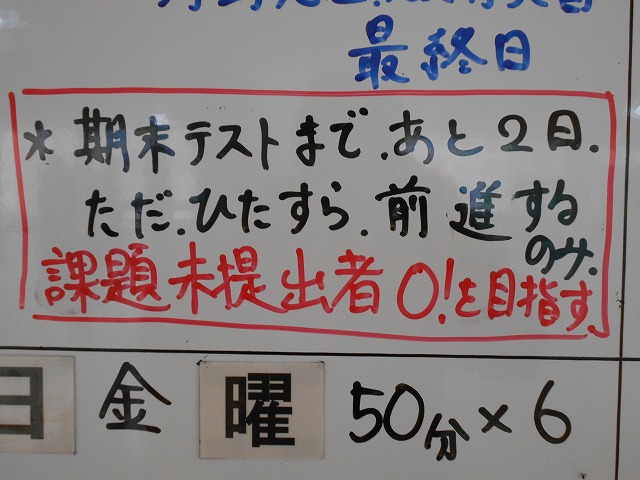 最終日
*期末テストまで、あと2日、
ただ、ひたすら、前進する
のみ、
課題未提出者0!を目指す、
日 金 曜 50分×6